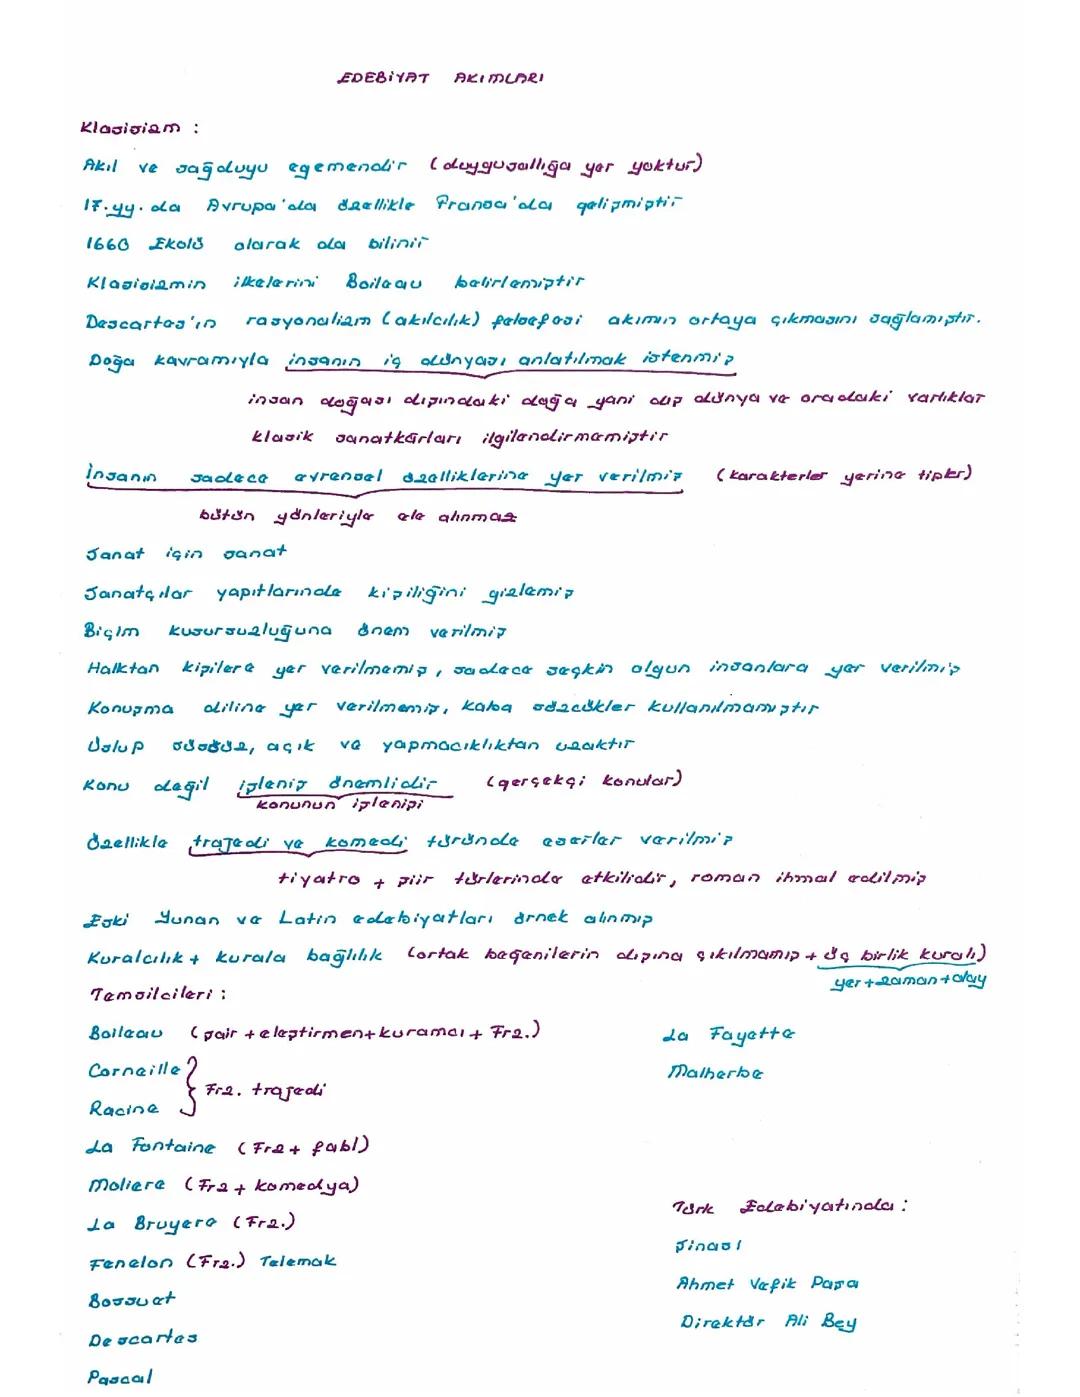 EDEBİYAT AKIMLARI
Klasisizm :
Akıl ve sağduyu egemendir (duygusallığa yer yoktur)
17.yy.da Avrupa'da özellikle Fransa'da gelişmiştir
1660 Ekolü olarak da bilinir
Klasisizmin ilkelerini Boileau belirlemiştir
Descartes'in rasyonalizm (akılcılık) felsefesi akımın ortaya çıkmasını sağlamıştır.
Doğa kavramıyla insanın iç dünyası anlatılmak istenmiş
insan doğası dışındaki doğa yani dış dünya ve oradaki varlıklar
klasik sanatkârları ilgilendirmemiştir
İnsanın sadece evrensel özelliklerine yer verilmiş (karakterler yerine tipler)
bütün yönleriyle ele alınmaz
Sanat için sanat
Sanatçılar yapıtlarında kişiliğini gizlemiş
Biçim kusursuzluğuna önem verilmiş
Halktan kişilere yer verilmemiş, sadece seçkin olgun insanlara yer verilmiş
Konuşma diline yer verilmemiş, kaba sözcükler kullanılmamıştır
Üslup süssüz, açık ve yapmacıklıktan uzaktır
Konu değil işleniş önemlidir (gerçekçi konular)
konunun işlenişi
Özellikle trajedi ve komedi türünde eserler verilmiş
tiyatro + şiir türlerinde etkilidir, roman ihmal edilmiş
Eski Yunan ve Latin edebiyatları örnek alınmış
Kuralcılık + kurala bağlılık (ortak beğenilerin dışına çıkılmamış + üç birlik kuralı)
yer+zaman+olay
Temsilcileri :
Boileau (şair + eleştirmen+kuramcı + Frz.)
La Fayette
Corneille
Malherbe
Frz. trajedi
Racine
La Fontaine (Frz + fabl)
Moliere (Frz + komedya)
Türk Edebiyatında :
La Bruyere (Frz.)
Şinasi
Fenelon (Frz.) Telemak
Ahmet Vefik Paşa
Bossuet
Direktör Ali Bey
Descartes
Pascal